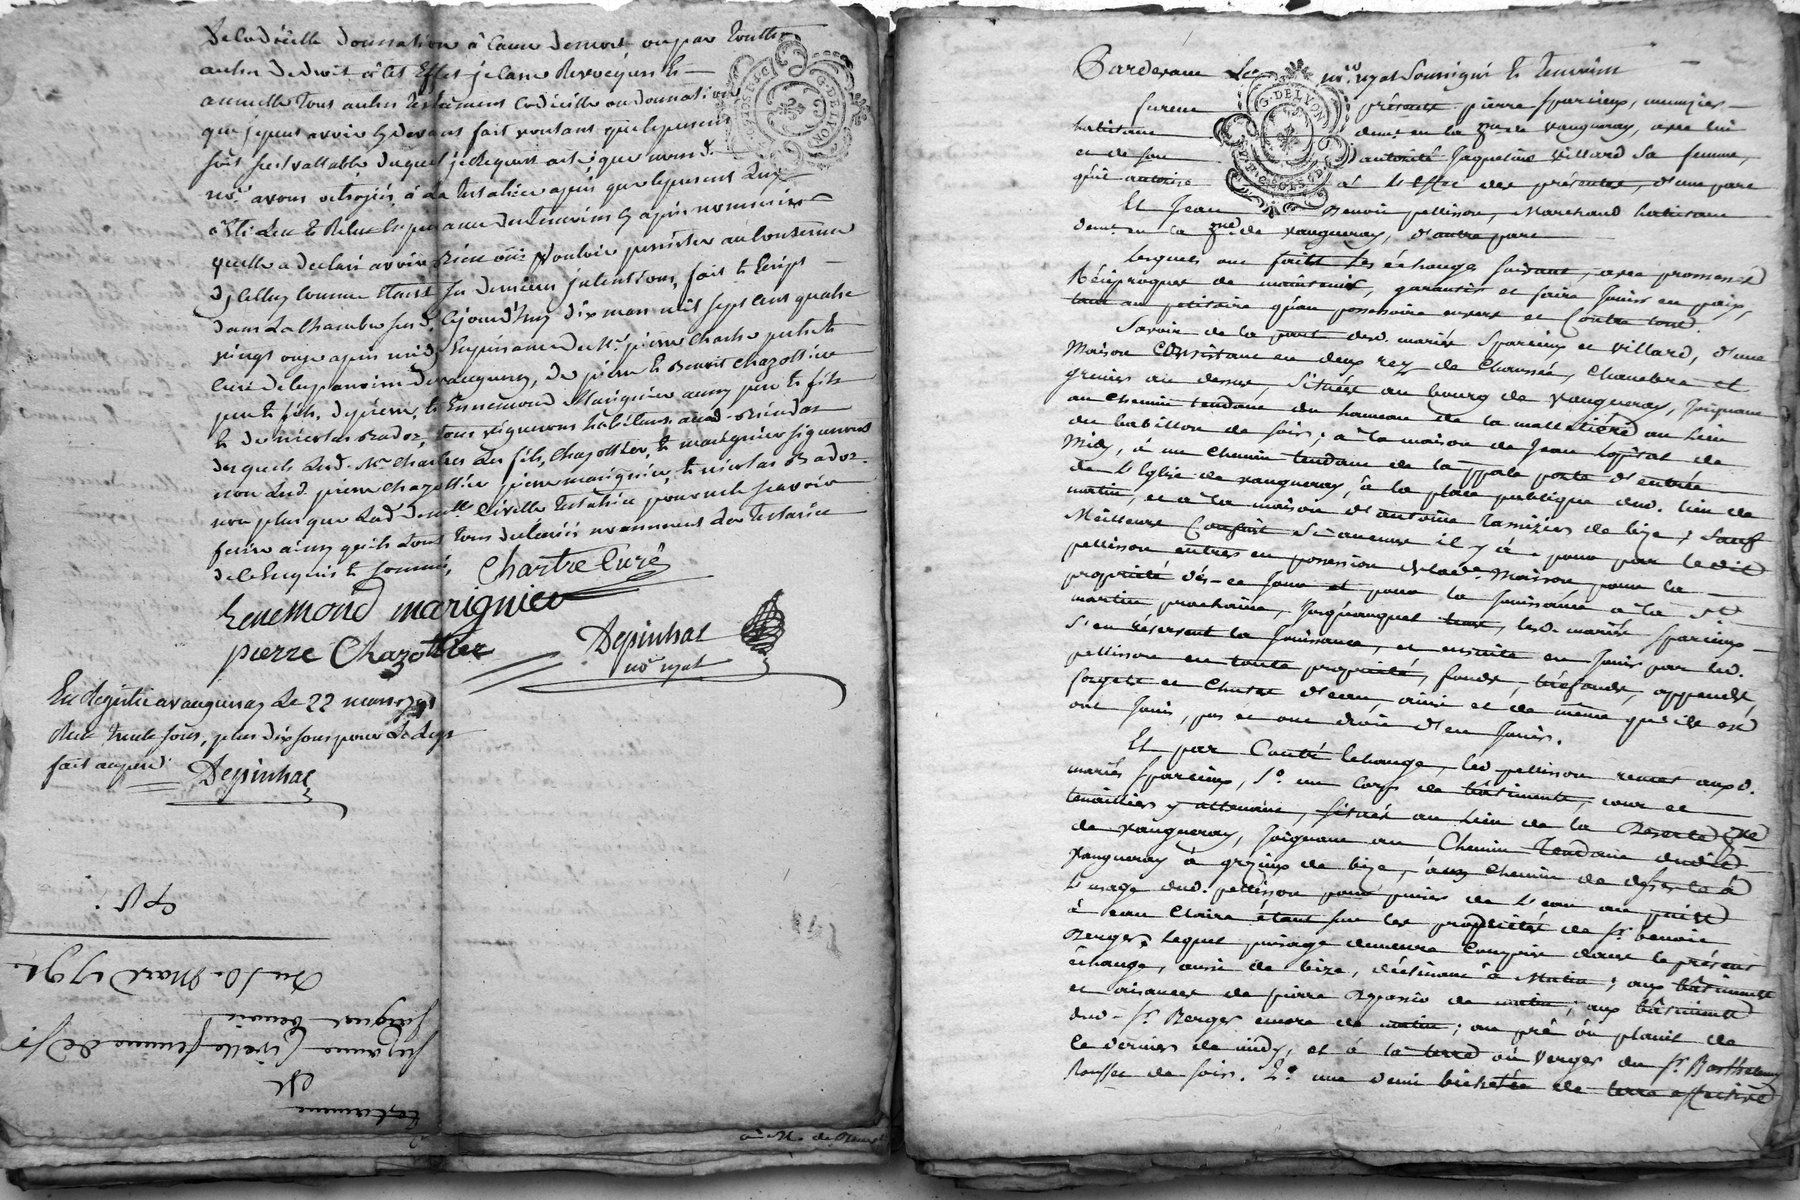 De la dicelle donnation à Cause de mort, ou par toutte
autre de droit à cet Effet, je casse Revocquent &
annulle tous autres testaments codicille ou donnation
que je peut avoir cy devant fait voulant que le present
soit seul vallable duquel je Requert acte, que nous d.
no.re avons octroyés, à la testatrice après que le present luy
a été Leu & Relue en presence des temoins cy après nommés
quelle a declaré avoir bien oüi & vouloir persister au Contenu
d'jcelluy comme étant ses dernieres jntentions, fait & Escript
dans la chambre susd. cejourd'huy dix mars mil sept cent quatre
vingt onze après midy En presence de M.r pierre Chartre prêtre
Curé de la paroisse de vaugneray, de pierre & Benoit Chazottier
pere & fils, de pierre & Ennemond Marignier aussy pere & fils
& de nicolas Bador, tous vignerons habitants aud.
desquels led. M.r Chartre les fils, Chazottier, & marignier signeront
non led. pierre Chazottier pierre marignier, & nicolas Bador
non plus que lad. demoi.lle Civelle testatrice pour ne le scavoir
faire ainsy qu'ils l'ont tous declarés
de ce Enquis & sommés,
Chartre Curé
Enemond marignier
pierre Chazottier
Depinhac
no.re royal
En Registré a vaugneray le 22 mars 1791
Reçu trente sous, plus dix sous pour
Depinhac
testament
De
Suzanne Civelle femme de S.r
jacques benoit
Du 10. Mars 1791.
G. DE LYON
Pardevant Le no.re royal soussigné & temoins
furent présents pierre sparcieux, menuzier
habitant demt. en la p.sse de vaugneray, avec lui
et de son autorité Jaqueline Villard sa femme,
qu'il autorise à l'effet des présentes, d'une part
Et Jean Benoit pellisson, Marchand habitant
demt. en la p.sse de vaugneray, d'autre part
Lesquels ont fait les échanges suivant, avec promesses
Réciproques de maintenir, garantir et faire jouir en paix,
tant au petitoire qu'au possessoire envers et Contre tous.
Savoir de la part desd. mariés Sparcieux et Villard, d'une
Maison Consistant en deux rez de Chaussée, Chambre et
greniers au dessus, située au bourg de vaugneray, joignant
au chemin tendant du hameau de la malletière au lieu
du babillon de soir; à la maison de Jean hopital de
Midy, à un chemin tendant de la p.pale porte d'entrée
de l'Eglise de vaugneray, à la place publique dud. lieu de
matin, et à la maison d'antoine de bize, sauf
Meilleurs Confins si aucuns il y à - pour par ledit
pellisson entrer en possession de lad. Maison pour la
propriété dès-ce jour et pour la jouissance à la S.t
martin prochaine, jusqu'auquel tems, lesd. mariés Sparcieux
s'en réservent la jouissance, et ensuite en jouir par led.
pellisson en toute propriété, fonds, tréfonds, appends,
forgets et Chutes d'eau, ainsi et de même qu'ils en
ont joui, pu et ont droit d'en jouir.
Et par Contr'échange, led. pellisson remet auxd.
mariés Sparcieux, 1.o un Corps de bâtiments, cour et
tenailliers y attenant, situés au lieu de la p.sse
de vaugneray, joignant au Chemin tendant dudit
vaugneray à grezieux de bize, à un chemin de
l'usage dud. pellisson pour puiser de l'eau au puits
à eau Claire étant sur les propriétés de S.r benoit
Berger, lequel puisage demeure Compris dans le présent
échange, aussi de bize, déclinant à Matin; aux bâtiments
et aisances de pierre de matin; aux bâtiments
dud. S.r Berger encore de matin; au pré ou plant de
ce dernier de midy, et à la terre ou verger du S.r Barthelemy
Rousset de soir. 2.o une demi bicherée de terre effective